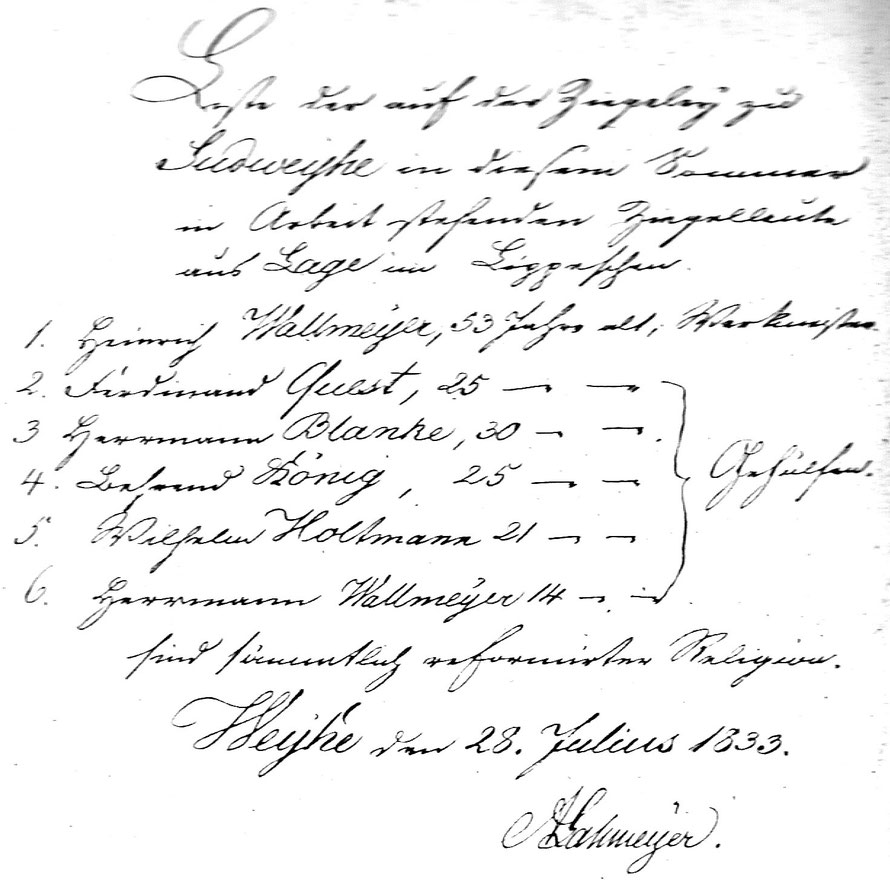 Liste der auf der Ziegeley zu
Sudweyhe in diesem Sommer
in Arbeit stehenden Ziegelleute
aus Lage im Lippeschen.
1. Heinrich Wallmeyer, 53 Jahre alt, Werkmeister.
2. Ferdinand Quest, 25 — —
3 Herrmann Blanke, 30 — —.
4. Behrend König, 25 — — Gehülfen.
5. Wilhelm Holtmann 21 — —
6. Herrmann Wallmeyer 14 — —
sind sämmtlich reformirter Religion.
Weyhe den 28. Julius 1833.
Wallmeyer.